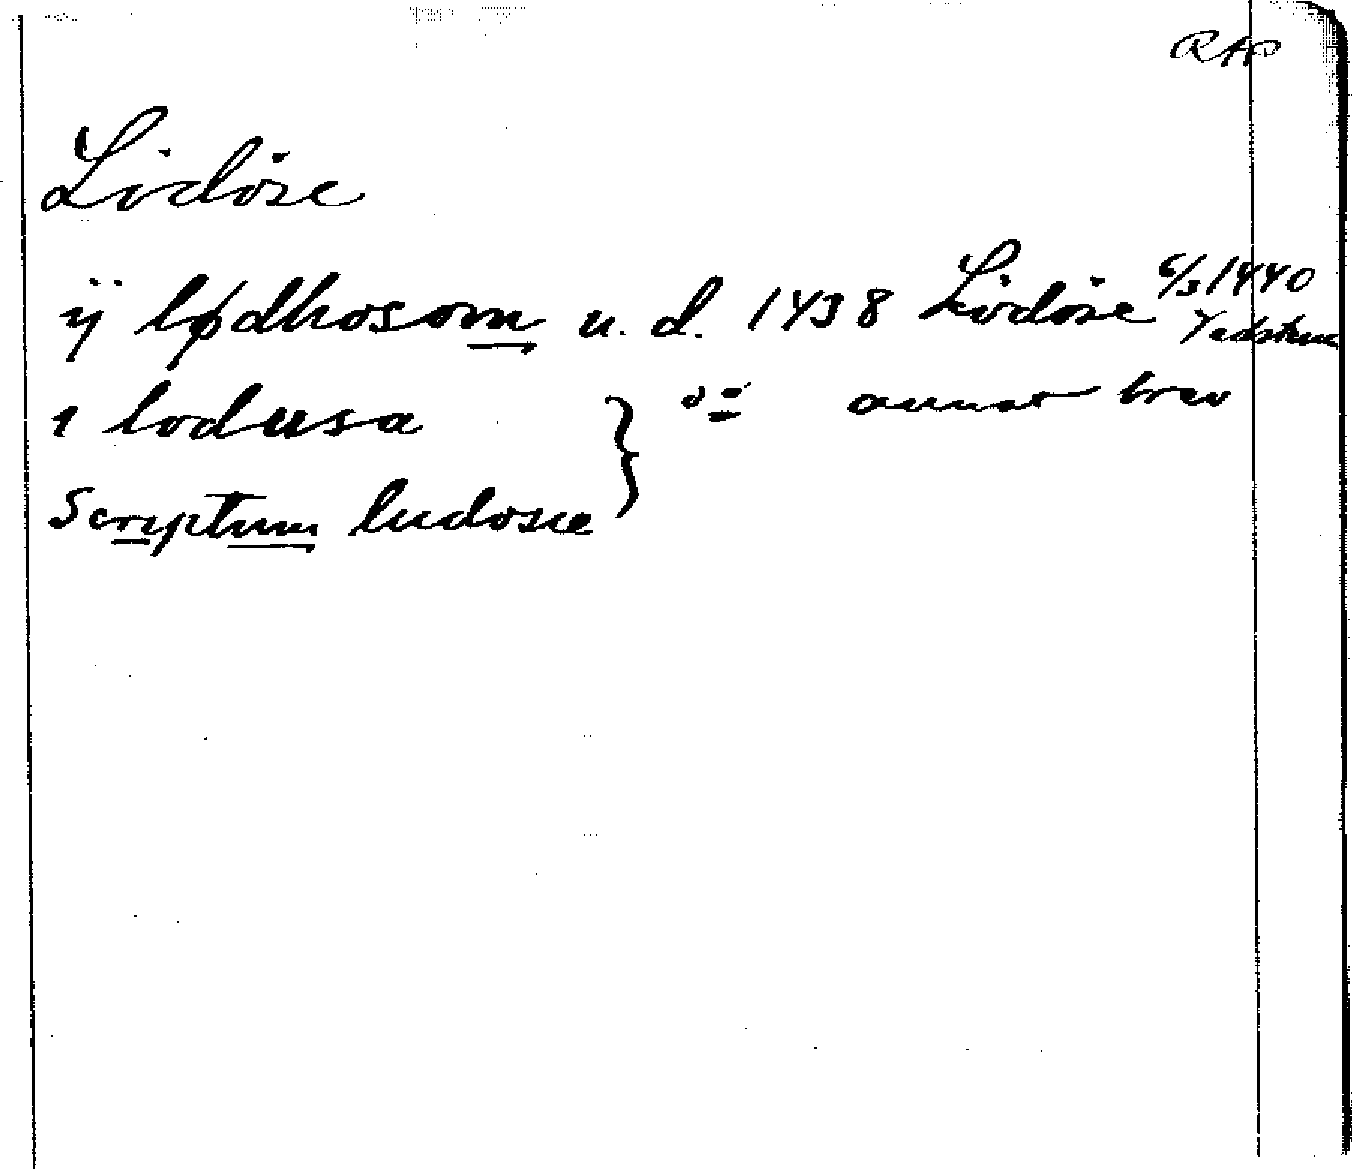 RAP
Lödöse
ÿ lødhosom u. d. 1438 Lödöse 6/3 1440
ı lodusa annat brev
Scriptum ludosie